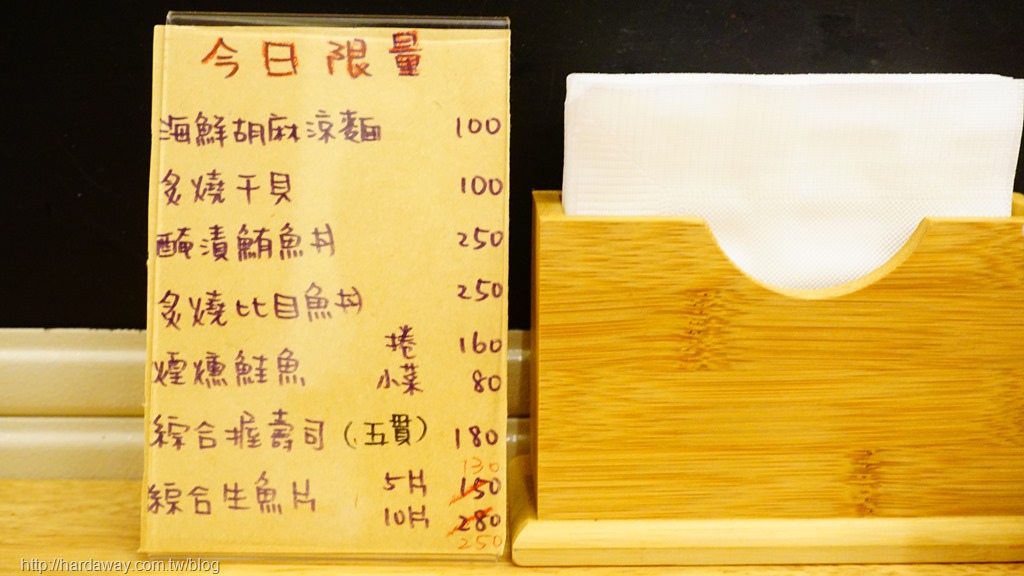 今日限量
海鮮胡麻涼麵 100
炙燒干貝 100
醃漬鮪魚丼 250
炙燒比目魚丼 250
煙燻鮭魚 捲 160
小菜 80
綜合握壽司(五貫) 180
130
綜合生魚片 5片 150
10片 280
250
http://hardaway.com.tw/blog